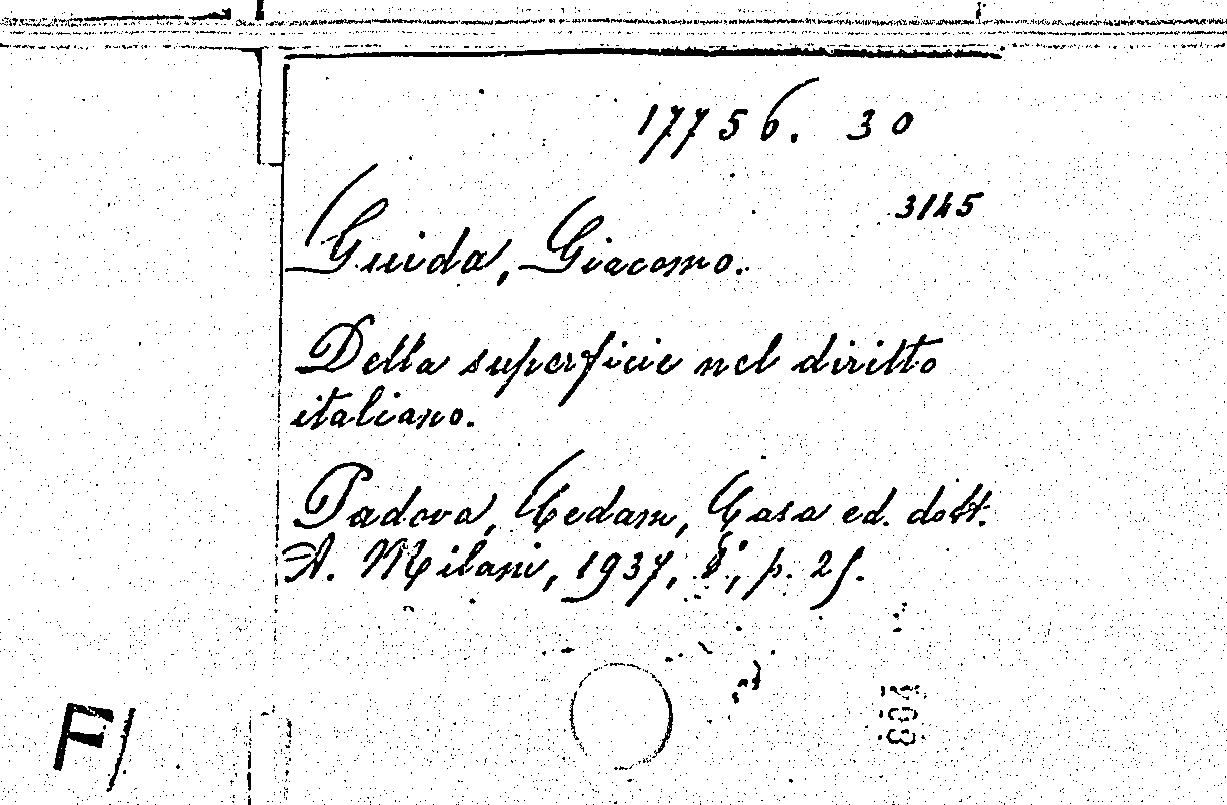 17756. 30
3145
Guida, Giacomo.
Della superficie nel diritto
italiano.
Padova, Cedam, Casa ed. dott.
A. Milani, 1937, 8°, p. 25.
F/